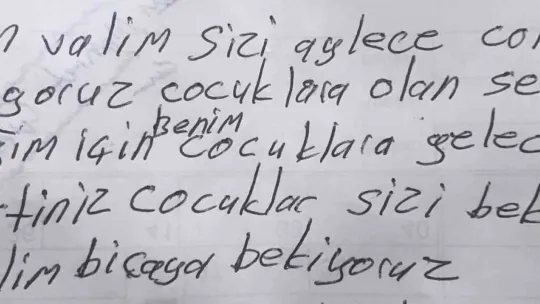 n valim sizi aylece cor
yoruz cocuklara olan se
sim için Benim cocuklara gelec
tiniz cocuklar sizi bek
lim bicaya bekiyoruz